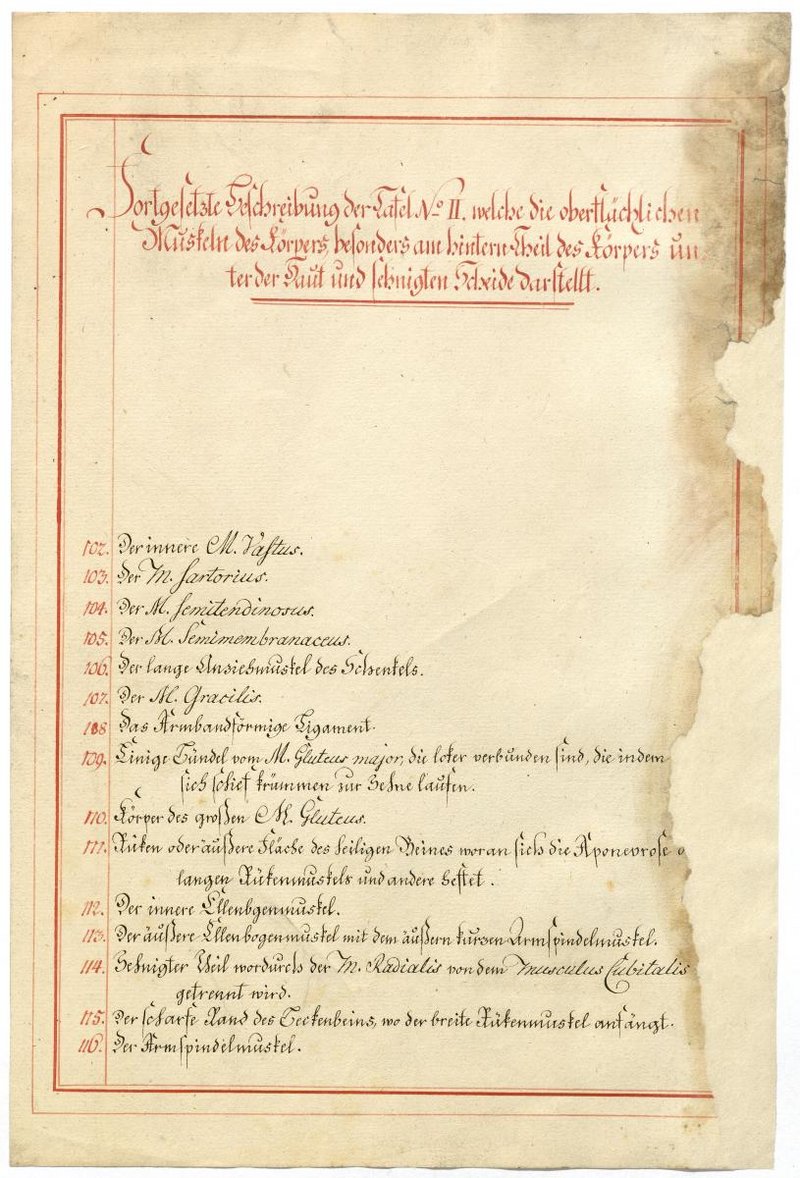 Fortgesetzte Beschreibung der Tafel No II. welche die oberflächlichen
Muskeln des Körpers, besonders am hintern Theil des Körpers un
ter der Haut und sehnigten Scheide darstellt.
102. Der innere M. Vastus.
103. Der M. Sartorius.
104. Der M. Semitendinosus.
105. Der M. Semimembranaceus.
106. Der lange Anziehmuskel des Schenkels.
107. Der M. Gracilis.
108 Das Armbandförmige Ligament.
109. Einige Bündel vom M. Gluteus major, die loker verbunden sind, die indem
sich schief krümmen zur Sehne laufen.
110. Körper des großen M. Gluteus.
111. Rüken oder äußere Fläche des heiligen Beines woran sich die Aponevrose
langen Rükenmuskels und andere heftet.
112. Der innere Ellenbgenmuskel.
113. Der äußere Ellenbogenmuskel mit dem äußern kurzen Armspindelmuskel.
114. Sehnigter Theil wordurch der M. Radialis von dem musculus Cubitalis
getrennt wird.
115. Der scharfe Rand des Beckenbeins, wo der breite Rükenmuskel anfängt.
116. Der Armspindelmuskel.